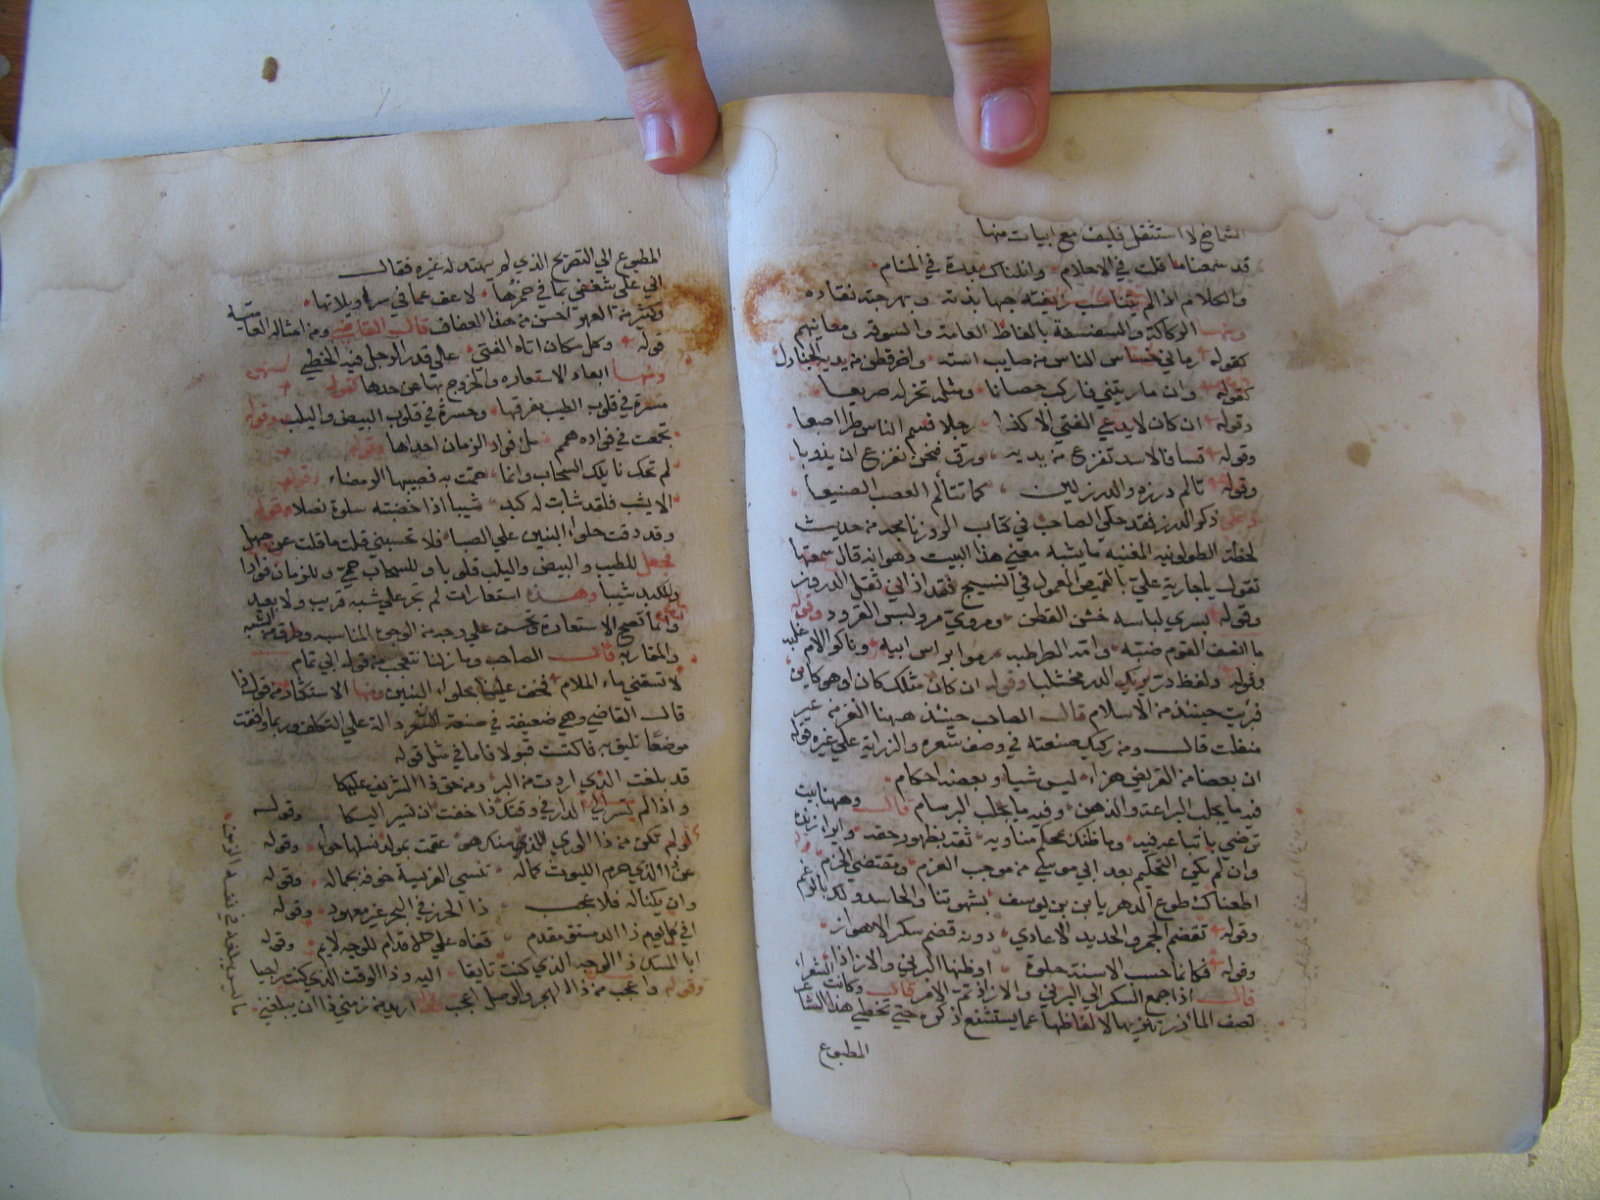 الشامخ لا استثقل فليف مع ابيات منها
قد سمعنا ما قلت في الاحلام وانلناك بدرة في المنام
والكلام اذا لم يتناسب زيفته جهابذته وبهرجته نقاده
ومنها الركاكة والسفسفة بالفاظ العامة والسوقة ومعانيهم
كقوله رماني خساس الناس من صايب استه واخر قطن من يديه الجنادل
كقوله وان ماريتني فاركب حصانا ومثله تخر له صريعا
وقوله ان كان لا يدعي الفتى الا كذا رجلا فسم الناس طرا اصبعا
وقوله قسا فالاسد تفزع من يديه ورق فنحن نفزع ان يذوبا
وقوله تالم درزه والدرز لين كما تتألم العضب الصنيعا
ذكر الدرز فقد حكى الصاحب في كتاب الروزنامجة من حديث
لحظة الطولونية المغنية ما يشبه معنى هذا البيت وهو انه قال سمعتها
تقول يا جارية علي بالقميص المعمول في النسيج فقد اذاني ثقل الدروز
وقوله بسري لباسه خشن القطن ومروي مرو لبس القرود وقوله
ما انصف القوم ضبه وامه الطرطبه رموا براس ابيه وناكوا الام غلبه
وقوله ولفظ دريريك الدر مخشلبا وقوله ان كان مثلك كان او هو كاين
فبرئت حينئذ من الاسلام قال الصاحب حينئذ ههنا انفر من عير
منفلت قال ومن ركيك صنعته في وصف شعره والزراية على غيره قوله
ان بعضا من القريض هزاء ليس شيا وبعضه احكام
فيه ما يجلب البراعة والذهن وفيه ما يجلب البرسام قال وههنا بيت
نرضى باتباعه فيه وما ظنك بمحكم مناويه ثقة بظهور حقه وايراء زنده
وان لم يكن التحكيم بعد ابي موسى من موجب العزم ومقتضى الحزم
اطعناك طوع الدهر يا بن بن يوسف بشهوتنا والحاسدو لك بالرغم
وقوله تقضم الجمر والحديد الاعادي دونه قضم سكر الاهواز
وقوله فكانما حسب الاسنة حلوة او ظنها البرني والازاذا
قال اذا جمع السكر الى البرني والازاذ تم الامر قال وكانت الشعراء
تصف المازر تنزيها لالفاظها عما يستشنع ذكره حتى تخطى هذا الشاعر
المطبوع
المطبوع الى التصريح الذي لم يهتد له غيره فقال
اني على شغفي بما في خمرها لاعف عما في سراويلاتها
وكثير من العهر احسن من هذا العفاف قال القاضي ومن امثاله العامية
قوله وكل مكان اتاه الفتى على قدر الرجل فيه الخطي
ومنها ابعاد الاستعارة والخروج بها عن حدها كقوله
مسرة في قلوب الطيب مفرقها وحسرة في قلوب البيض واليلب وقوله
تجمعت في فؤاده همم مل فؤاد الزمان احداها وقوله
لم تحك نايلك السحاب وانما حمت به فصبيبها الرحضاء وقوله
الا يشب فلقد شابت له كبد شيبا اذا خضبته سلوة نصلا وقوله
وقد ذقت حلواء البنين على الصبا فلا تحسبني قلت ما قلت عن جهل
فجعل للطيب والبيض واليلب قلوبا وللسحاب حمى وللزمان فؤادا
وللكبد شيبا وهذه استعارات لم تجر على شبه قريب ولا بعيد
وانما تصح الاستعارة وتحسن على وجه من الوجوه المناسبة وطرق من الشبه
والمقاربة قال الصاحب وما زلنا نتعجب من قول ابي تمام
لا تسقني ماء الملام فخف علينا بحلواء البنين ومنها الاستكثار من قول ذا
قال القاضي وهي ضعيفة في صنعة الشعر دالة على التكلف وربما وافقت
موضعا تليق به فاكتست قبولا فاما في مثل قوله
قد بلغت الذي اردت من البر ومن حق ذا الشريف عليكا
واذا لم تسر الى الدار في وقتك ذا خفت ان تسير اليكا وقوله
لو لم تكن من ذا الورى اللذ منك هو عقمت بمولد نسلها حواء وقوله
عن ذا الذي حرم الليوث كماله تنسي الفريسة خوفه بجماله وقوله
وان بكينا له فلا عجب ذا الجزر في البحر غير معهود وقوله
افي كل يوم ذا الدمستق مقدم قفاه على الاقدام للوجه لايم وقوله
ابا المسك ذا الوجه الذي كنت تايقا اليه وذا الوقت الذي كنت راجيا
وقوله واعجب من ذا الهجر والوصل اعجب اريد من زمني ذا ان يبلغني
ما ليس يبلغه في نفسه الزمن